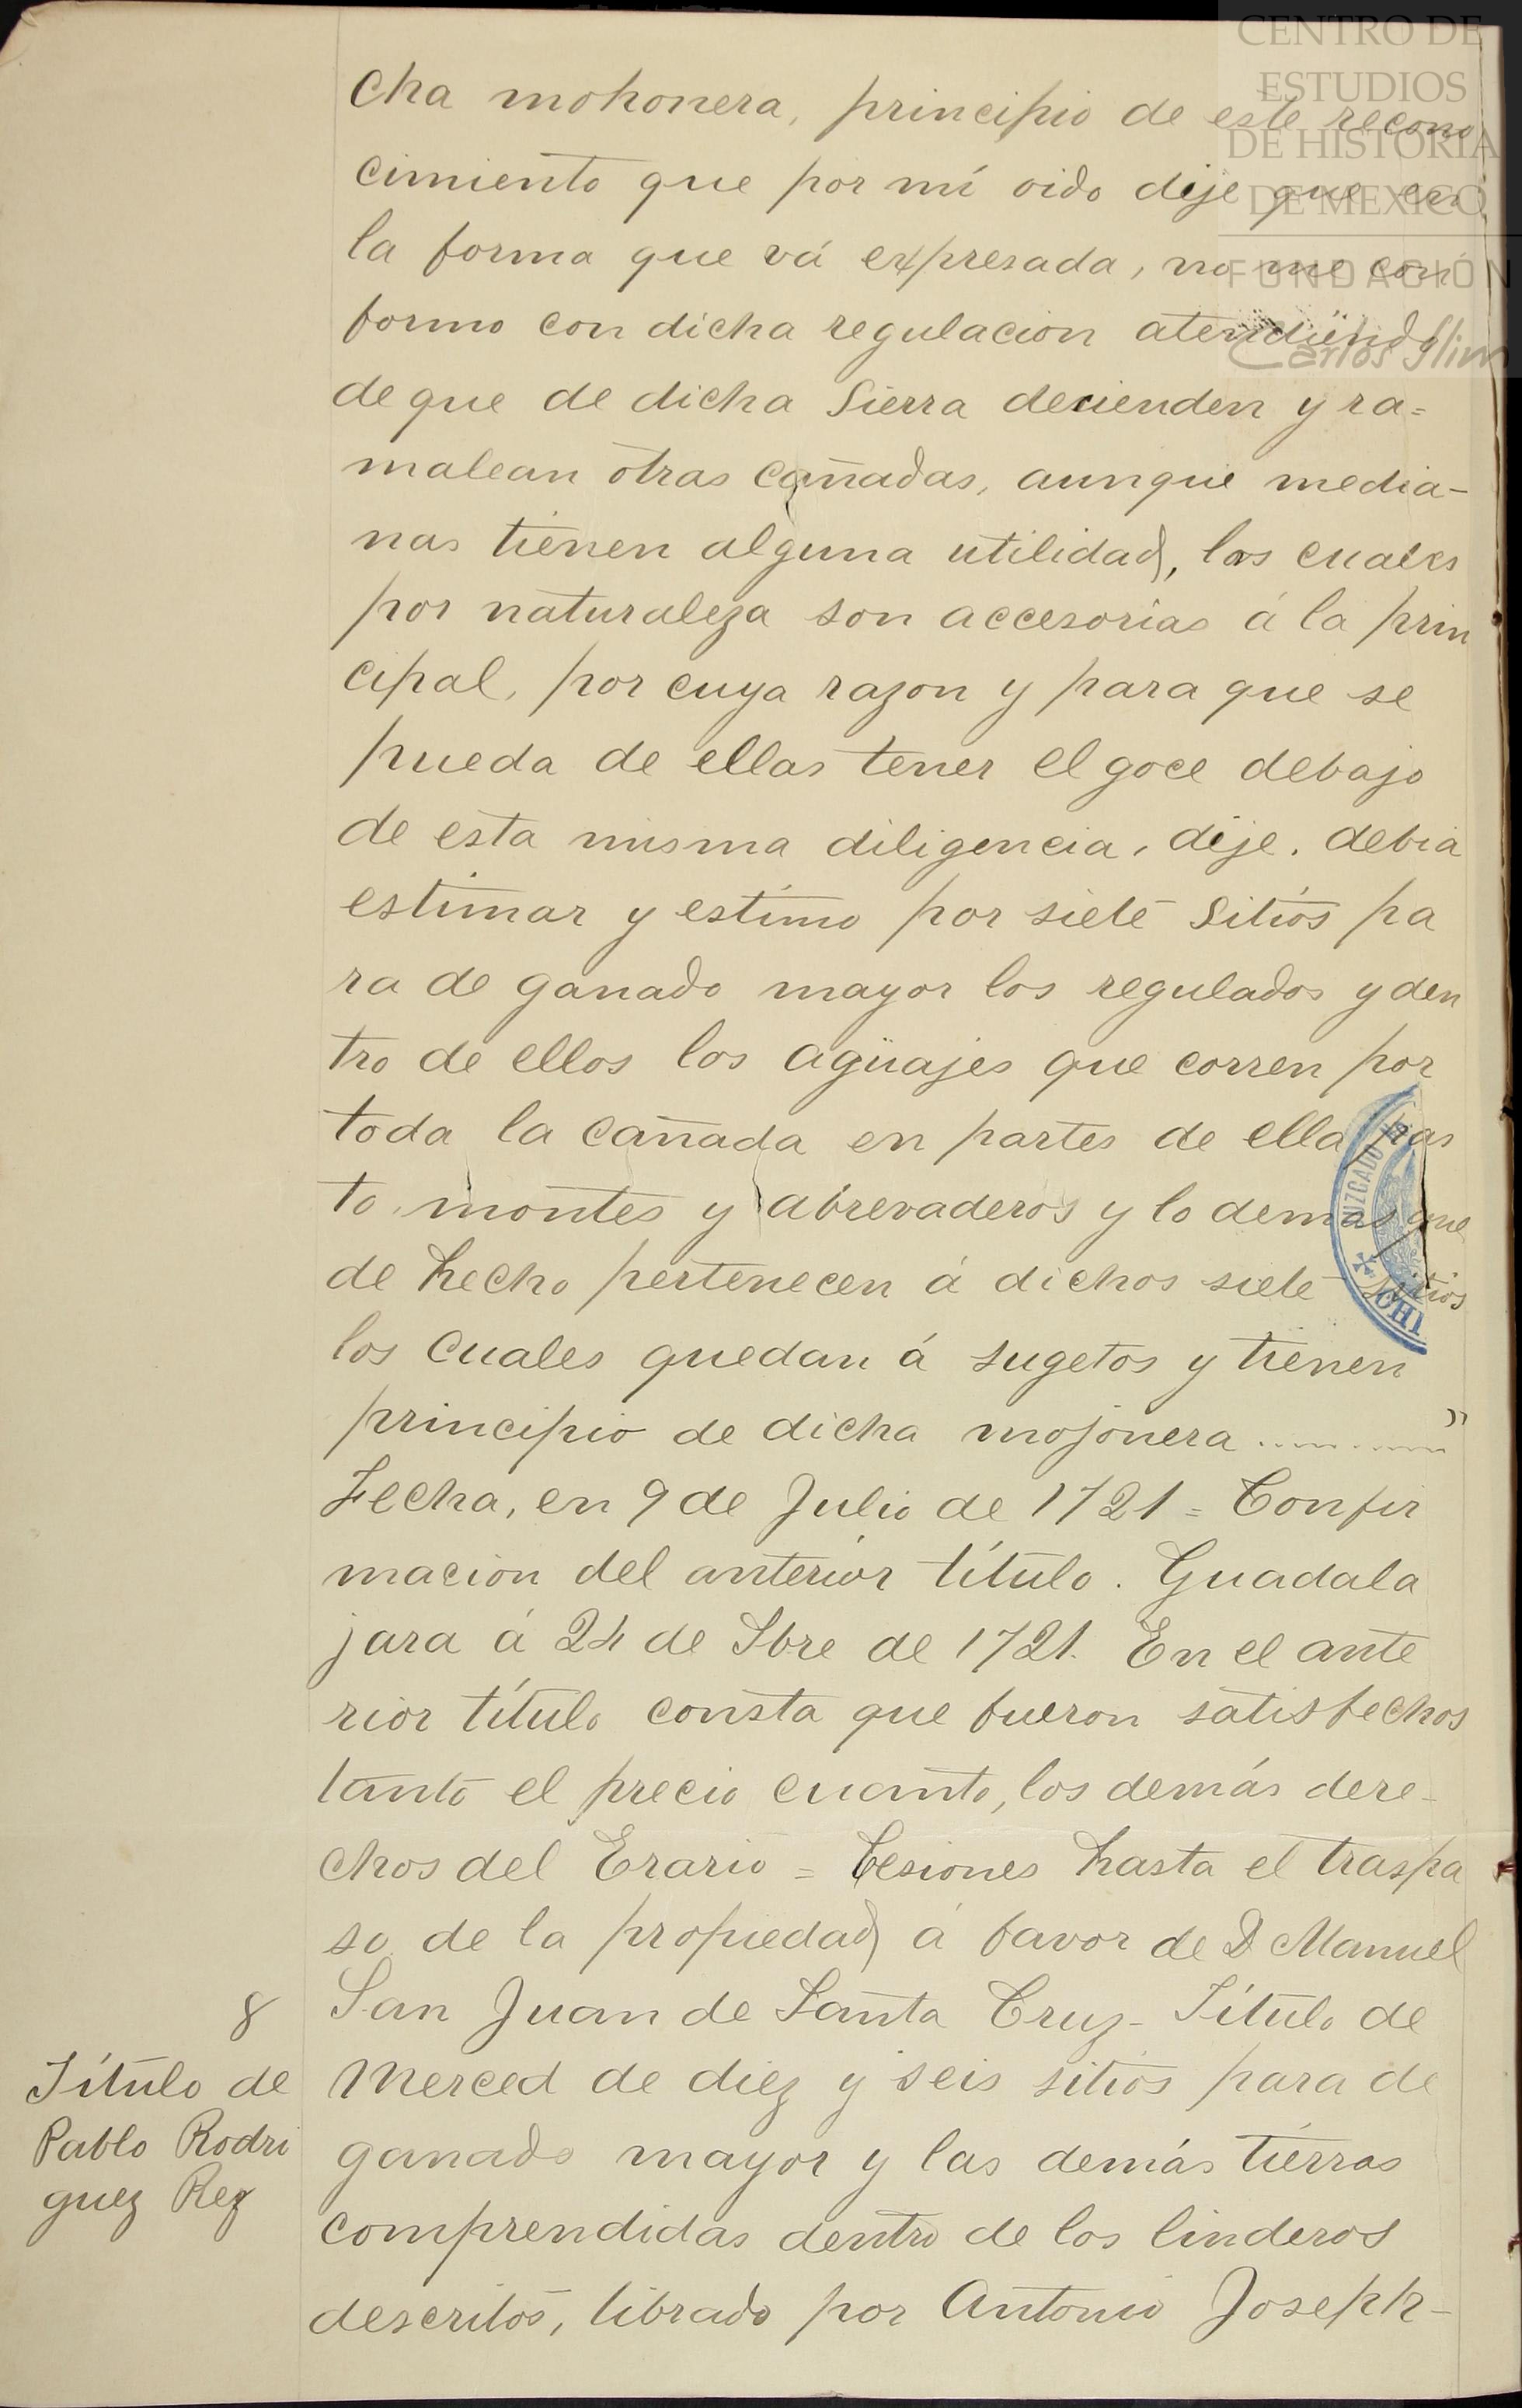 CENTRO DE
ESTUDIOS
DE HISTORIA
DE MEXICO
FUNDACIÓN
Carlos Slim
cha mohonera, principio de este recono
cimiento que por mí oido dije que en
la forma que vá expresada, no me con
formo con dicha regulacion atendiendo
de que de dicha Sierra decienden y ra=
malean otras cañadas, aunque media-
nas tienen alguna utilidad, las cuales
por naturaleza son accesorias á la prin
cipal, por cuya razon y para que se
pueda de ellas tener el goce debajo
de esta misma diligencia, dije, debia
estimar y estimo por siete Sitios pa
ra de ganado mayor los regulados y den
tro de ellos los agüajes que corren por
toda la cañada en partes de ella pas
to, montes y abrevaderos y lo demas que
de hecho pertenecen á dichos siete sitios
los cuales quedan á sugetos y tienen
principio de dicha mojonera ........... "
Fecha, en 9 de Julio de 1721 = Confir
macion del anterior título. Guadala
jara á 24 de Sbre de 1721. En el ante
rior título consta que fueron satisfechos
tanto el precio cuanto, los demás dere-
chos del Erario = Cesiones hasta el traspa
so de la propiedad á favor de D Manuel
San Juan de Santa Cruz- Título de
Merced de diez y seis sitios para de
ganado mayor y las demás tierras
comprendidas dentro de los linderos
descritos, librado por Antonio Joseph-
8
Título de
Pablo Rodri
guez Rez
JUZGADO